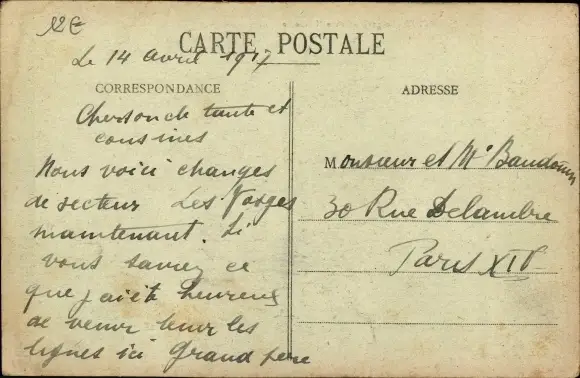 12€
CARTE POSTALE
Le 14 avril 1917
CORRESPONDANCE
Cher oncle tante et
cousines
Nous voici changés
de secteur Les Vosges
maintenant. Si
vous saviez ce
que j'ai été heureux
de venir tenir les
lignes ici Grand père
ADRESSE
Monsieur et Me Baudouin
30 Rue Delambre
Paris XIVe